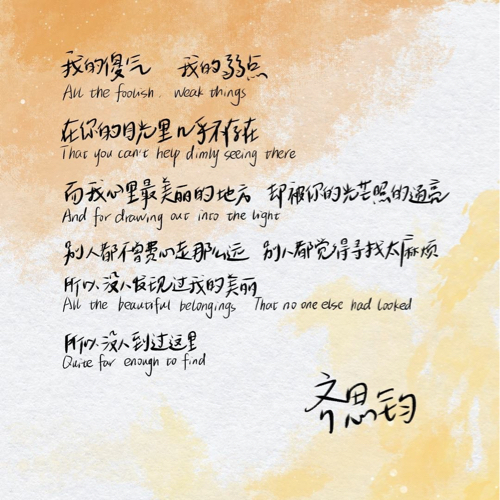 我的傻气 我的弱点
All the foolish, weak things
在你的目光里几乎不存在
That you can't help dimly seeing there
而我心里最美丽的地方 却被你的光芒照的通亮
And for drawing out into the light
别人都不曾费心走那么远 别人都觉得寻找太麻烦
所以没人发现过我的美丽
All the beautiful belongings That no one else had looked
所以没人到过这里
Quite far enough to find
齐思钧